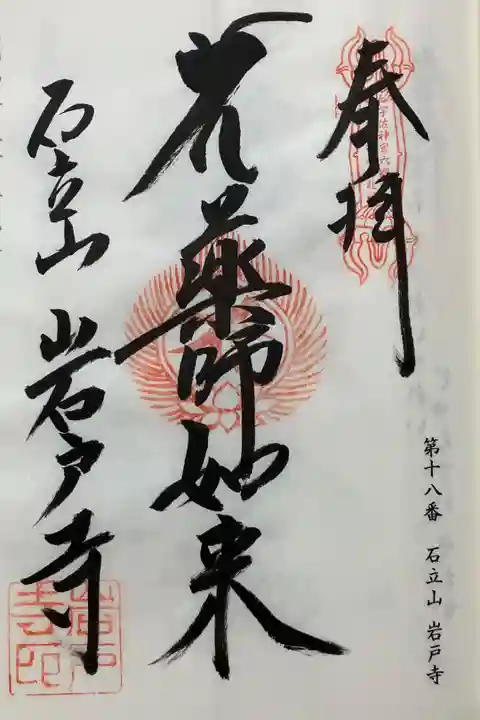 奉拝
第十八番 石立山 岩戸寺
薬師如来
石立山 岩戸寺
岩戸寺印